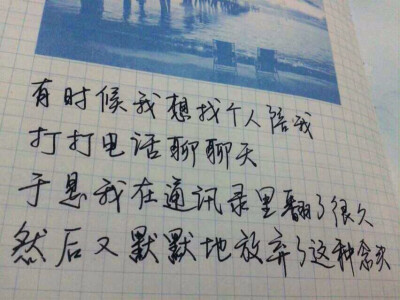 有时候我想找个人陪我
打打电话聊聊天
于是我在通讯录里翻了很久
然后又默默地放弃了这种念头